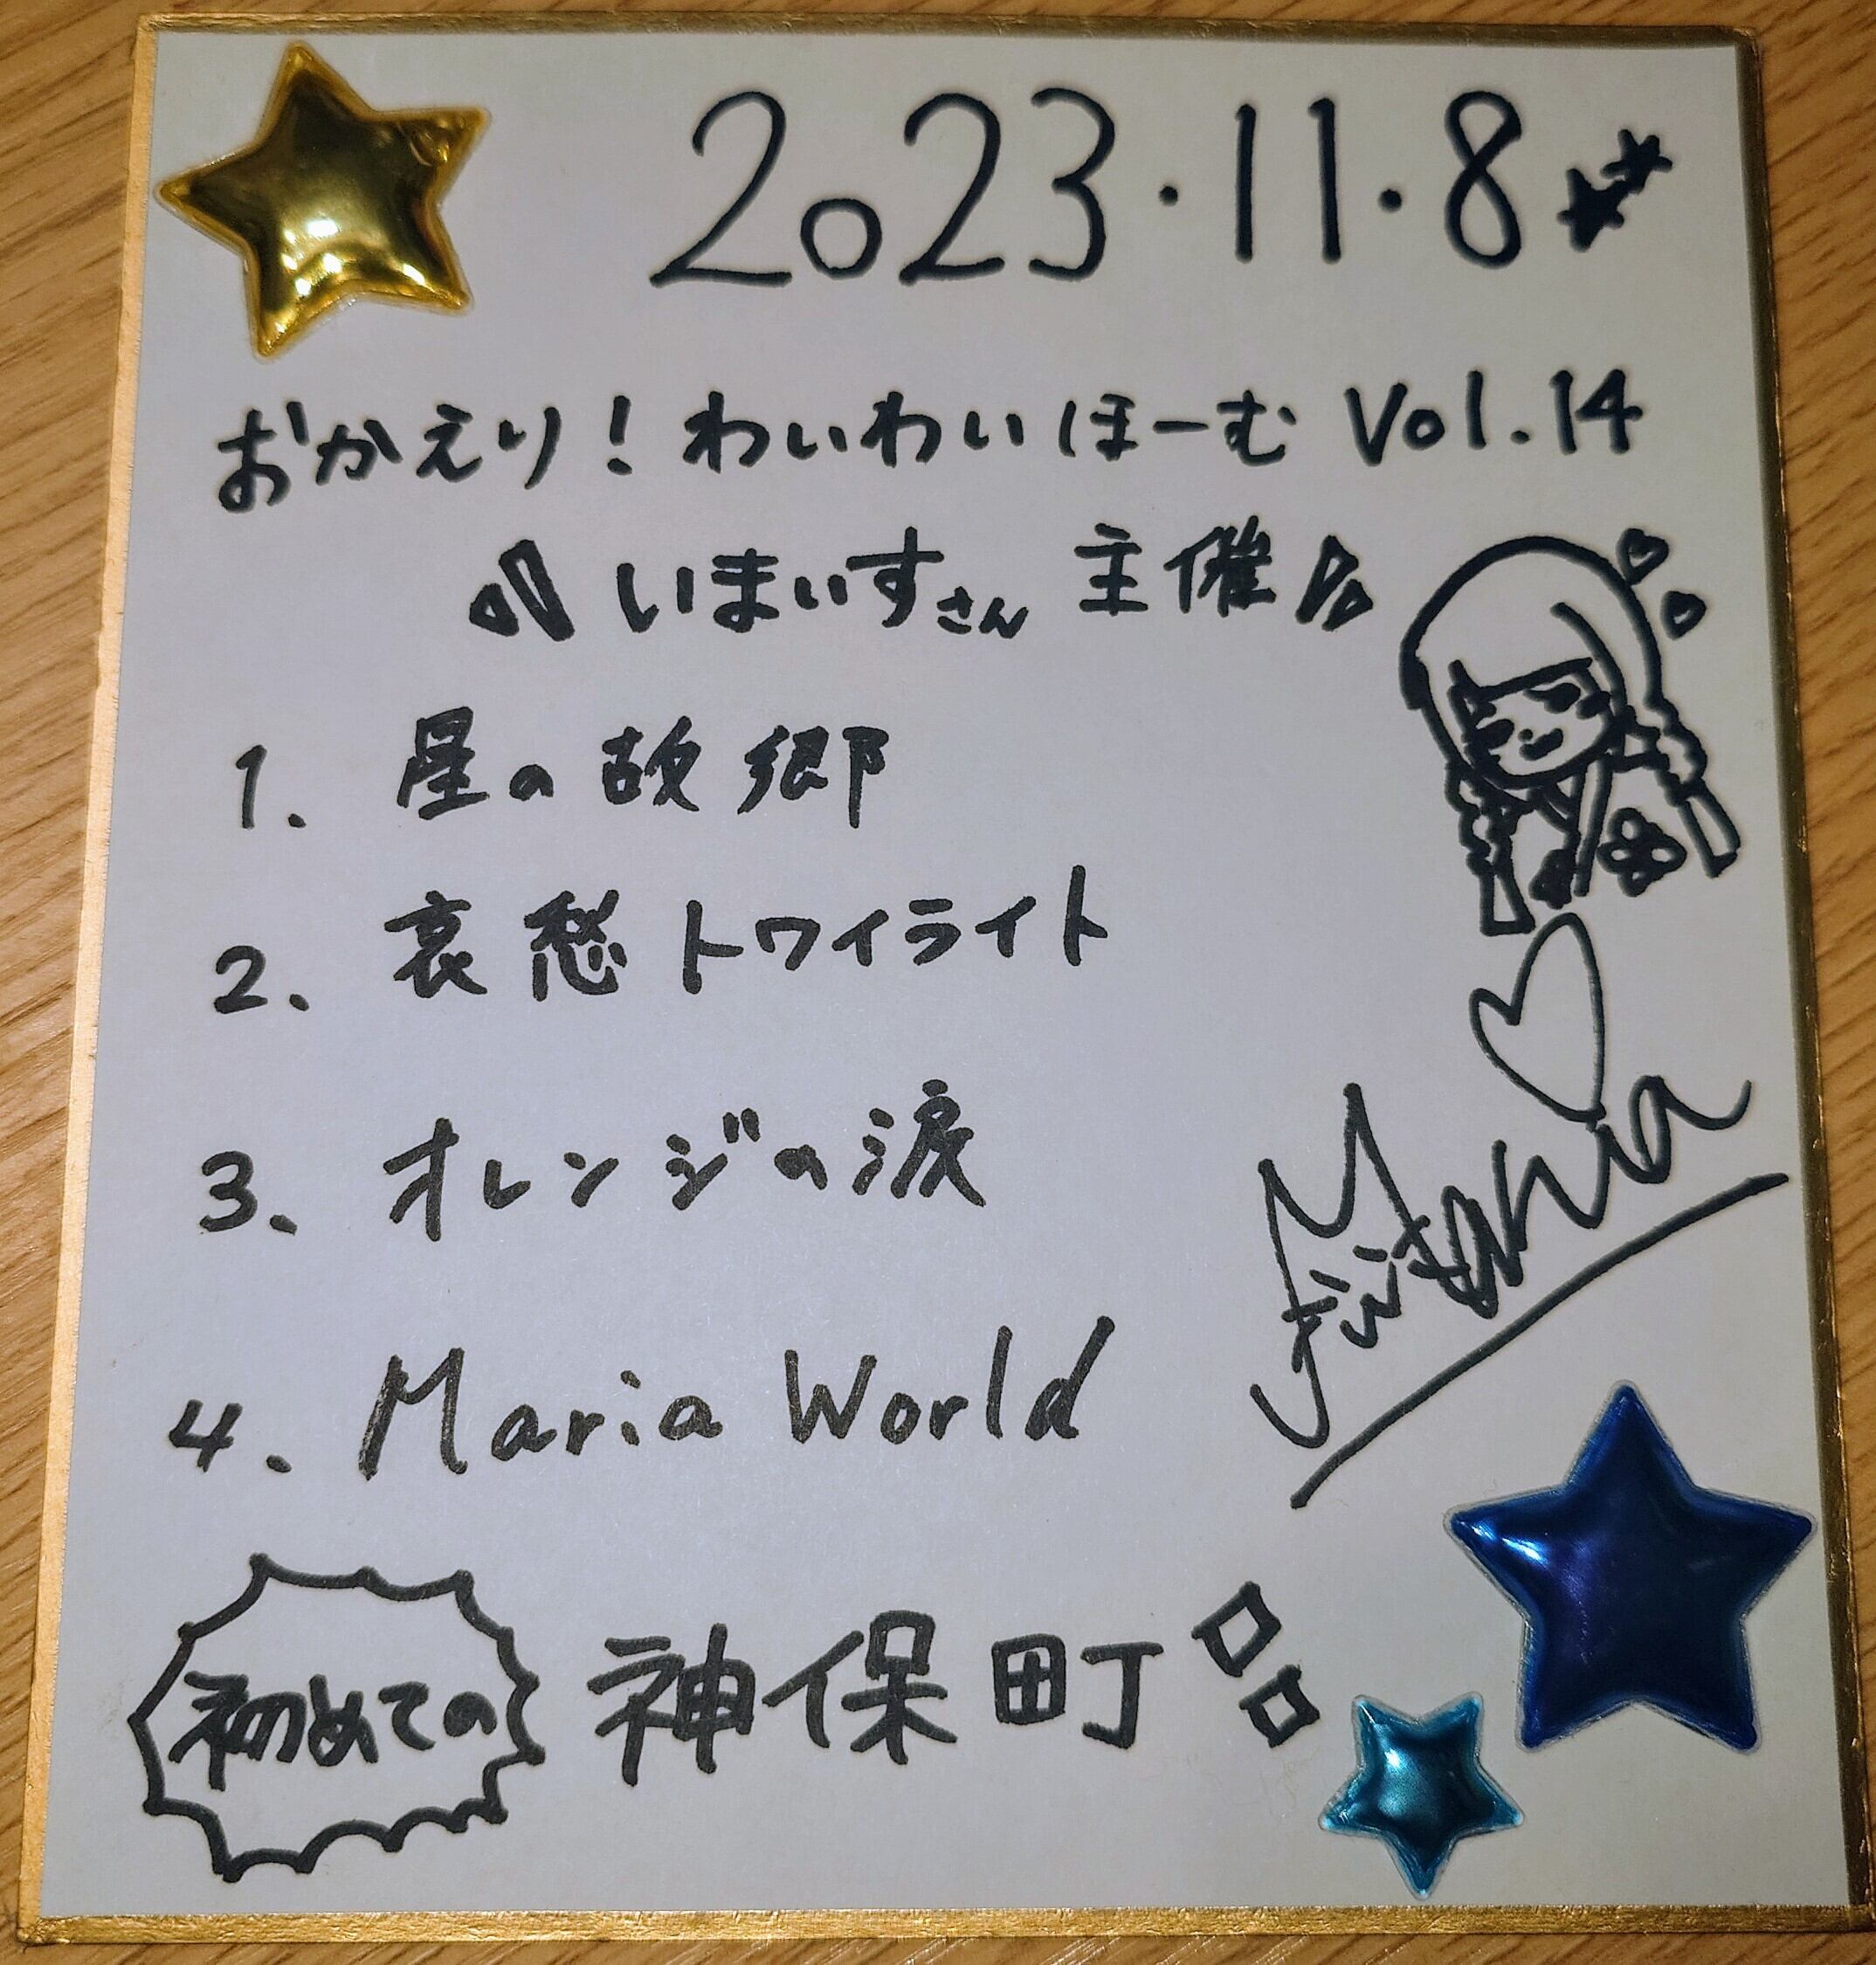 2023・11・8
おかえり！わいわいほーむ Vol.14
いまいすさん 主催
1. 星の故郷
2. 哀愁トワイライト
3. オレンジの涙
4. Maria World
初めての 神保町